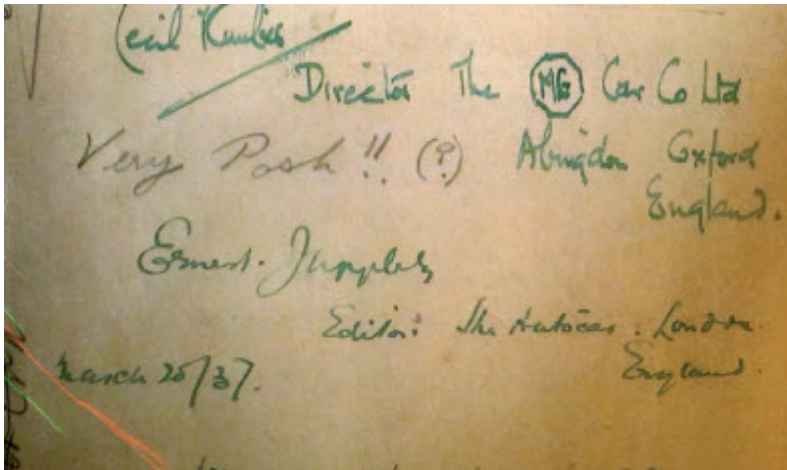 Cecil Kimber
Director The MG Car Co Ltd
Very Posh!! (?) Abingdon Oxford
England.
Ernest.
Editor: The Autocar. London.
March 25/37. England.